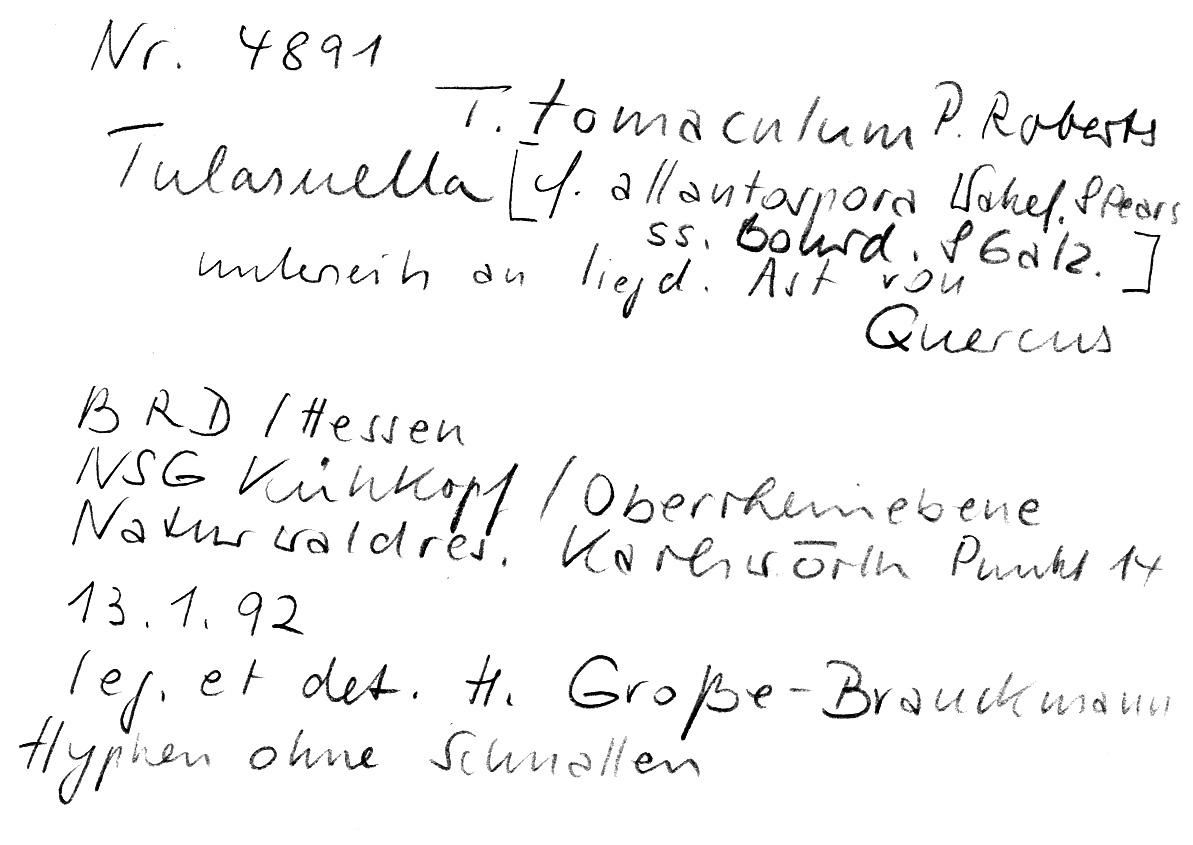 Nr. 4891
T. tomaculum P. Roberts
Tulasnella [cf. allantospora Wakef. & Pears
ss. Bourd. & Galz.]
unterseits an liegd. Ast von
Quercus
BRD / Hessen
NSG Kühkopf / Oberrheinebene
Naturwaldres. Karlswörth Punkt 14
13.1.92
leg. et det. H. Große-Brauckmann
Hyphen ohne Schnallen